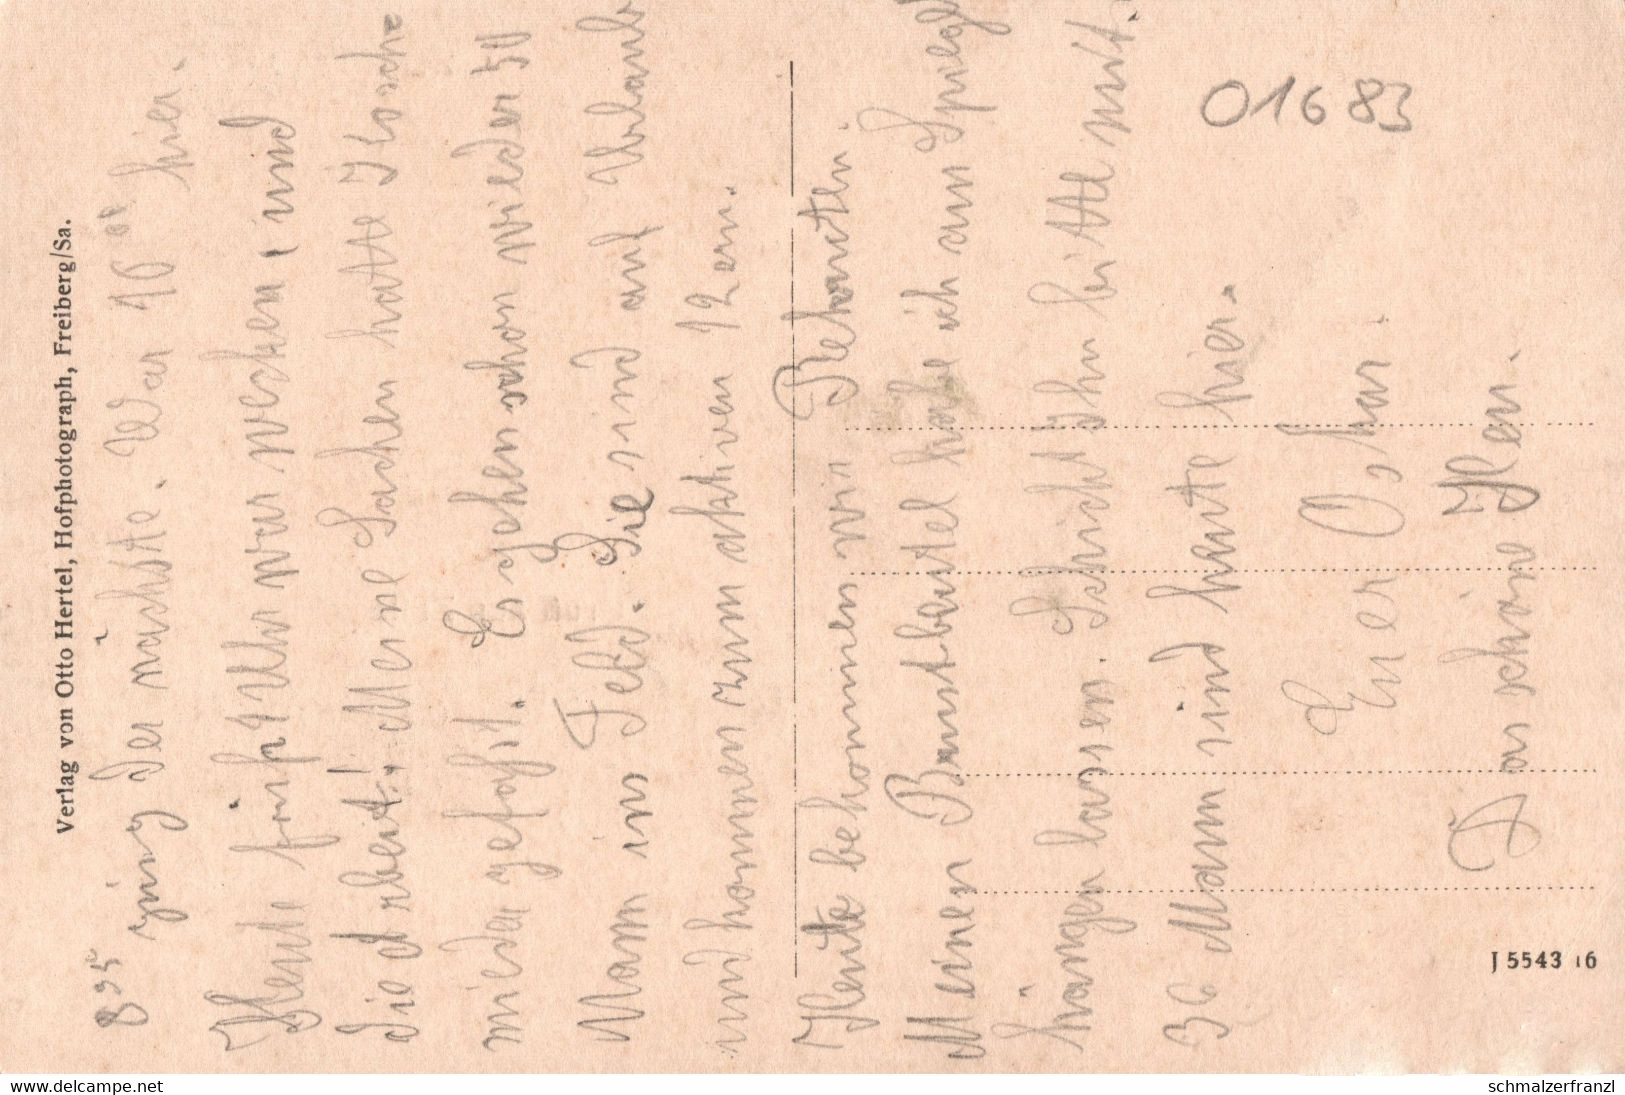 Verlag von Otto Hertel, Hofphotograph, Freiberg/Sa.
8 35 ging der nächste. War 10 00 hier.
Heute früh 4 Uhr war wecken, und
die Arbeit! Meine Sachen hatte Kosche
wieder gefaßt. Es gehen schon wieder 50
Mann ins Feld. Sie sind auf Urlaub
und kommen zum aktiven 12 ern.
Heute bekommen wir Rekruten.
Meinen Brustbeutel habe ich am Spiegel
hängen lassen. Schickt ihn bitte mit.
36 Mann sind heute hier.
Euer Oskar
Das schöne Heu.
01683
J 5543 16
schmalzerfranzl
delcampe.net